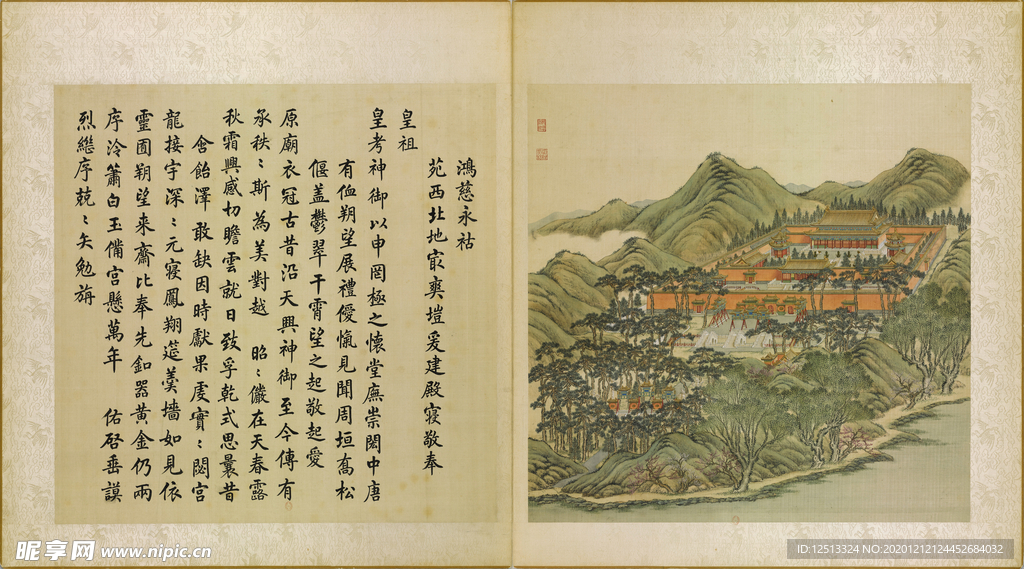 鴻慈永祜
苑西北地寂爽塏爰建殿寢敬奉
皇祖
皇考神御以申罔極之懷堂廡崇閎中唐
有侐朔望展禮優愾見聞周垣喬松
偃盖鬱翠干霄望之起敬起愛
原廟衣冠古昔沿天興神御至今傳有
承秩〻斯為美對越 昭〻儼在天春露
秋霜興感切瞻雲就日致孚乾式思曩昔
含飴澤敢缺因時獻果虔實〻閟宮
龍接宇深〻元寢鳳翔筵羹墻如見依
靈囿朔望来齋比奉先釦器黄金仍兩
序泠簫白玉備宫懸萬年 佑啓垂謨
烈繼序兢〻矢勉旃
昵享网 www.nipic.cn
ID:12513324 NO:20201212124452684032